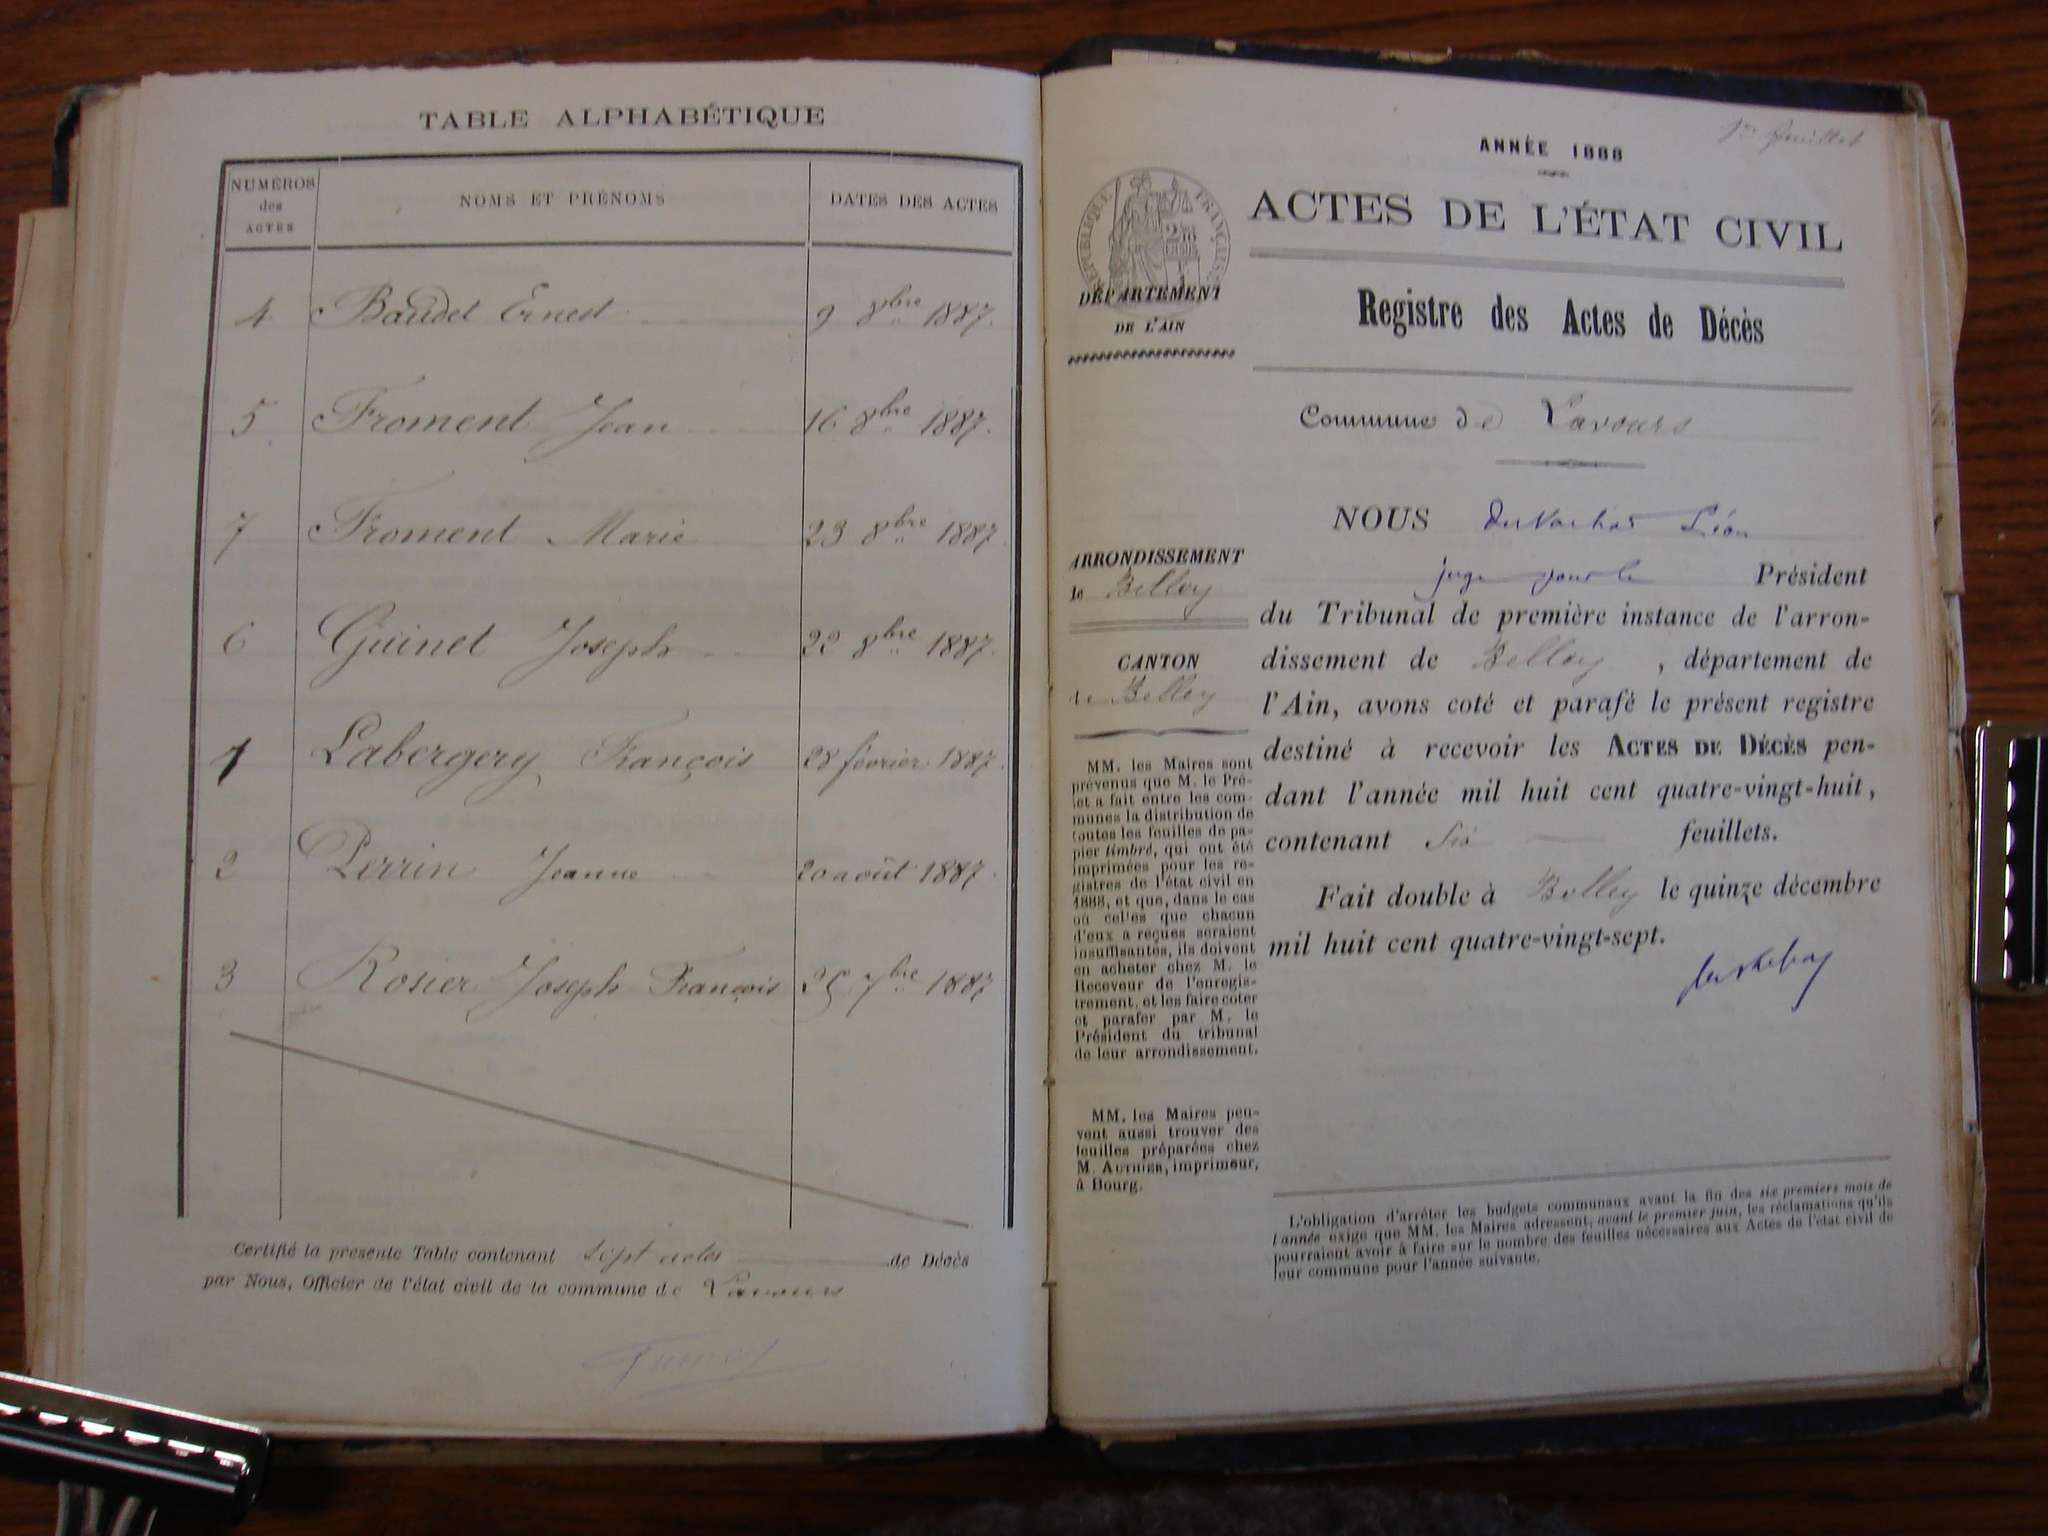 TABLE ALPHABÉTIQUE
NUMÉROS des ACTES NOMS ET PRÉNOMS DATES DES ACTES
4 Baudet Ernest 9 8bre 1887.
5 Froment Jean 16 8bre 1887.
7 Froment Marie 23 8bre 1887.
6 Guinet Joseph 22 8bre 1887.
1 Labergery François 28 février 1887.
2 Perrin Jeanne 20 août 1887.
3 Rosier Joseph François 25 7bre 1887
Certifié la présente Table contenant sept actes de Décès
par Nous, Officier de l'état civil de la commune de Lavours
1er feuillet
ANNÉE 1888
ACTES DE L'ÉTAT CIVIL
RÉPUBLIQUE FRANÇAISE
DÉPARTEMENT
DE L'AIN
Registre des Actes de Décès
Commune de Lavours
ARRONDISSEMENT
de Belley
CANTON
de Belley
MM. les Maires sont
prévenus que M. le Pré-
fet a fait entre les com-
munes la distribution de
toutes les feuilles de pa-
pier timbré, qui ont été
imprimées pour les re-
gistres de l'état civil en
1888, et que, dans le cas
où celles que chacun
d'eux a reçues seraient
insuffisantes, ils doivent
en acheter chez M. le
Receveur de l'enregis-
trement, et les faire coter
et parafer par M. le
Président du tribunal
de leur arrondissement.
MM. les Maires peu-
vent aussi trouver des
feuilles préparées chez
M. AUTHIER, imprimeur,
à Bourg.
NOUS Léon
juge pour le Président
du Tribunal de première instance de l'arron-
dissement de Belley, département de
l'Ain, avons coté et parafé le présent registre
destiné à recevoir les ACTES DE DÉCÈS pen-
dant l'année mil huit cent quatre-vingt-huit,
contenant six feuillets.
Fait double à Belley le quinze décembre
mil huit cent quatre-vingt-sept.
L'obligation d'arrêter les budgets communaux avant la fin des six premiers mois de
l'année exige que MM. les Maires adressent, avant le premier juin, les réclamations qu'ils
pourraient avoir à faire sur le nombre des feuilles nécessaires aux Actes de l'état civil de
leur commune pour l'année suivante.